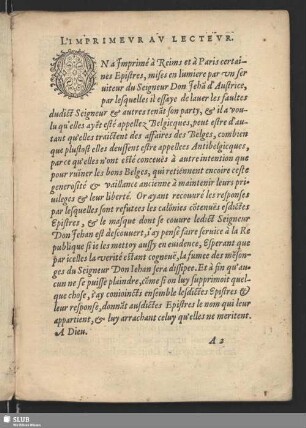 L'IMPRIMEVR AV LECTEVR.
ON a Imprimé à Reims et à Paris certai-
nes Epistres, mises en lumiere par vn ser
uiteur du Seigneur Don Jehã d'Austrice,
par lesquelles il essaye de lauer les faultes
dudict Seigneur & autres tenãt son party, & il a vou-
lu qu'elles ayẽt esté appellez Belgicques, peut estre d'au-
tant qu'elles traictent des affaires des Belges, combien
que plustost elles deussent estre appellees Antibelgicques,
par ce qu'elles n'ont esté conceuës à autre intention que
pour ruiner les bons Belges, qui retiennent encoire ceste
generosité & vaillance ancienne à maintenir leurs pri-
uileges & leur liberté. Or ayant recouuré les responses
par lesquelles sont refutees les calõnies cõtenuës esdictes
Epistres, & le masque dont se couure ledict Seigneur
Don Jehan est descouuert, i'ay pensé faire seruice à la Re
publique si ie les mettoy aussy en euidence, Esperant que
par icelles la verité estant cogneuë, la fumee des mẽson-
ges du Seigneur Don Iehan sera dissipee. Et à fin qu'au-
cun ne se puisse plaindre, cõme si on luy supprimoit quel-
que chose, i'ay conioincts ensemble lesdictes Epistres &
leur response, donnãt ausdictes Epistres le nom qui leur
appartient, & luy arrachant celuy qu'elles ne meritent.
A Dieu.
A 2
SLUB